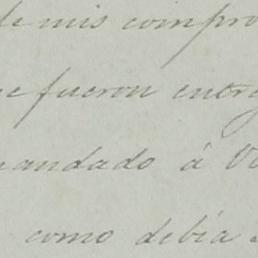 de mis compro
ue fueron entre
mandado à V
como debía